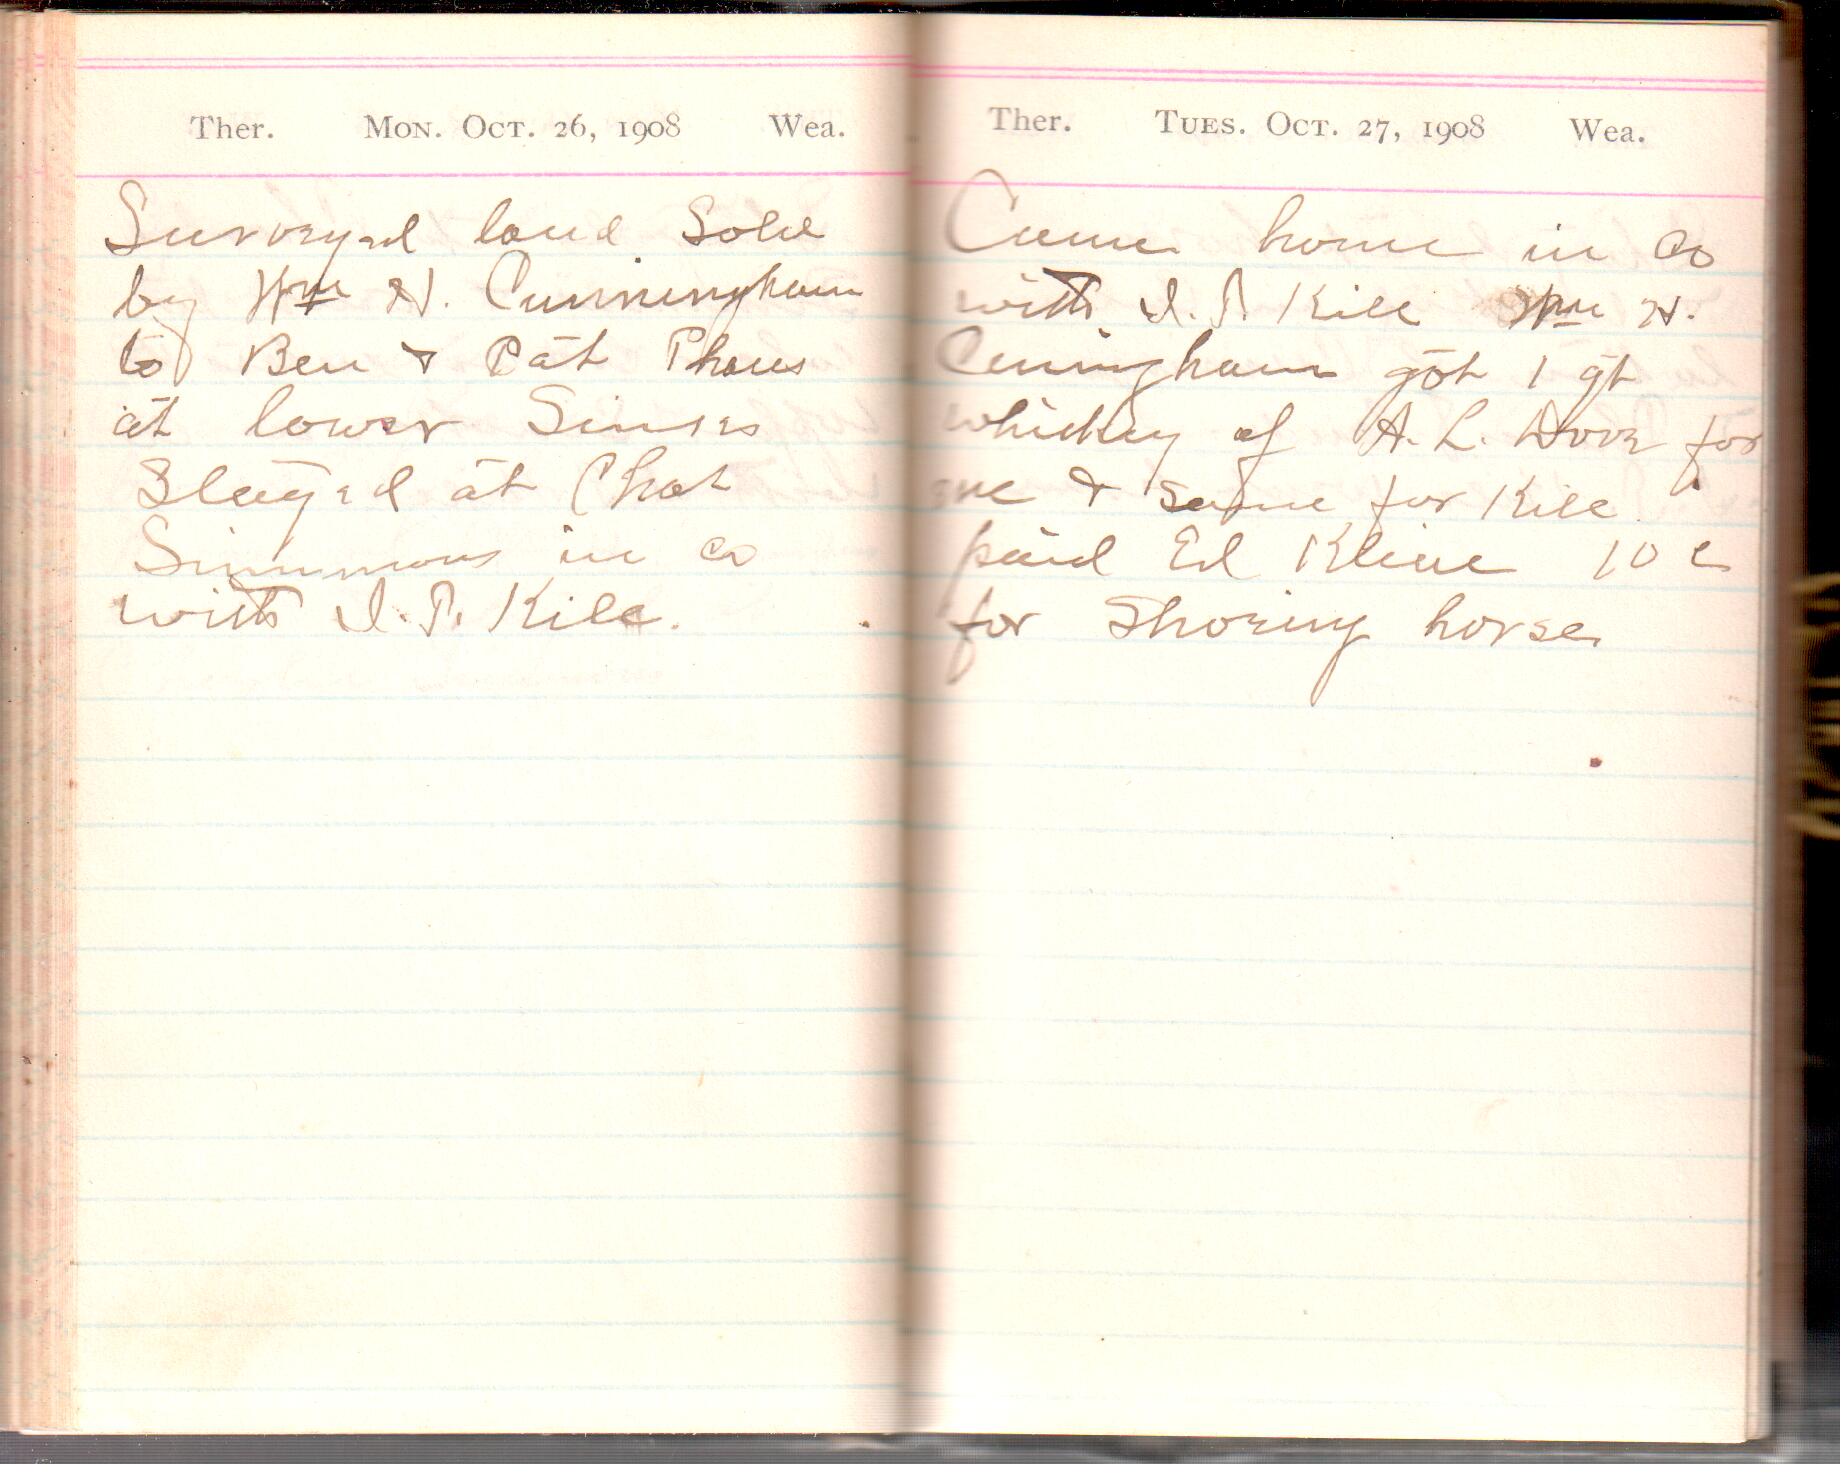 Ther. Mon. Oct. 26, 1908 Wea.
Surveyed land Sold
by Wm H. Cunningham
to Ben & Pat Phares
at lower Sinks
Stayed at Chat
Simmons in co
with I. P. Kile.
Ther. Tues. Oct. 27, 1908 Wea.
Came home in co
with I. P. Kile Wm H.
Cuningham got 1 qt
whiskey of A. L. Dove for
me & same for Kile
paid Ed Kline 10 c
for Shoeing horse